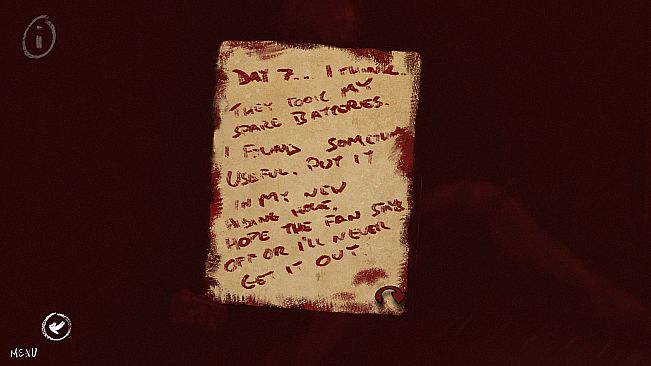 i
DAY 7.. I THINK..
THEY TOOK MY
SPARE BATTERIES.
I FOUND SOMETHING
USEFUL. PUT IT
IN MY NEW
HIDING HOLE.
HOPE THE FAN STAYS
OFF OR I'LL NEVER
GET IT OUT.
MENU